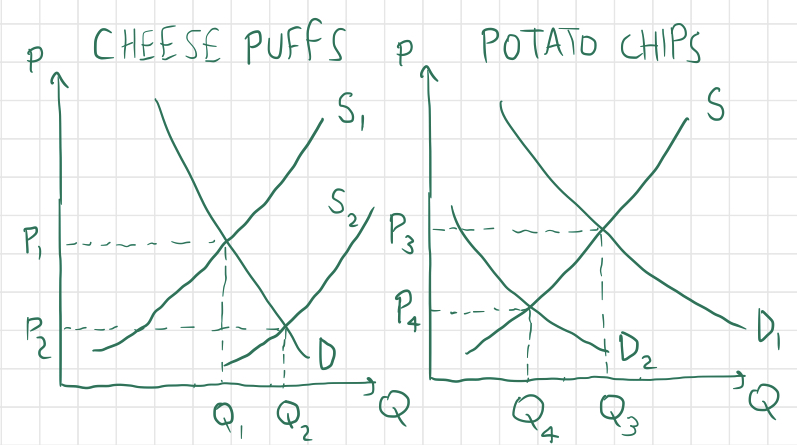 CHEESE PUFFS
P
S₁
S₂
P₁
P₂
D
Q₁ Q₂
Q
POTATO CHIPS
P
S
P₃
P₄
D₁
D₂
Q₄ Q₃
Q